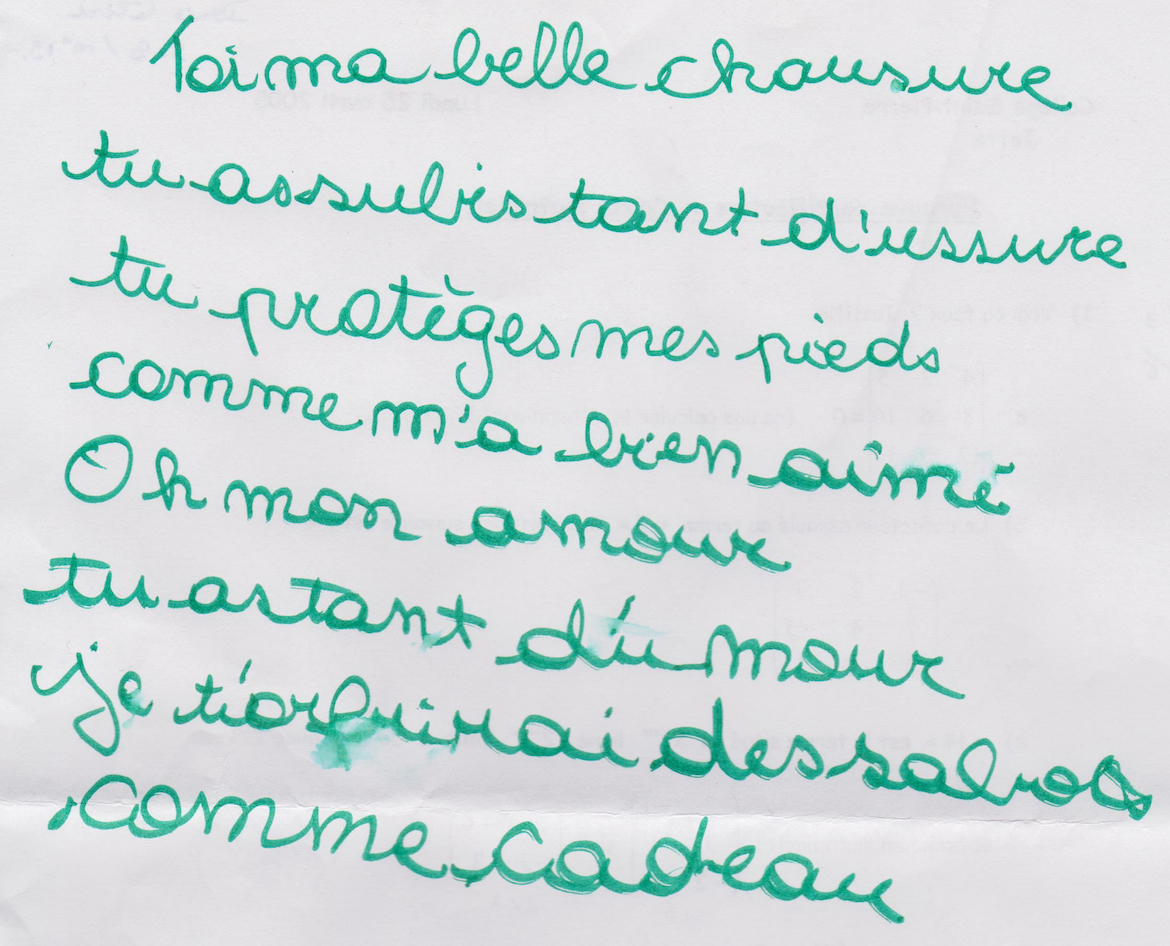 Toi ma belle chausure
tu as subis tant d'ussure
tu protèges mes pieds
comme m'a bien aimé
Oh mon amour
tu as tant d'umour
je t'offrirai des sabots
comme cadeau